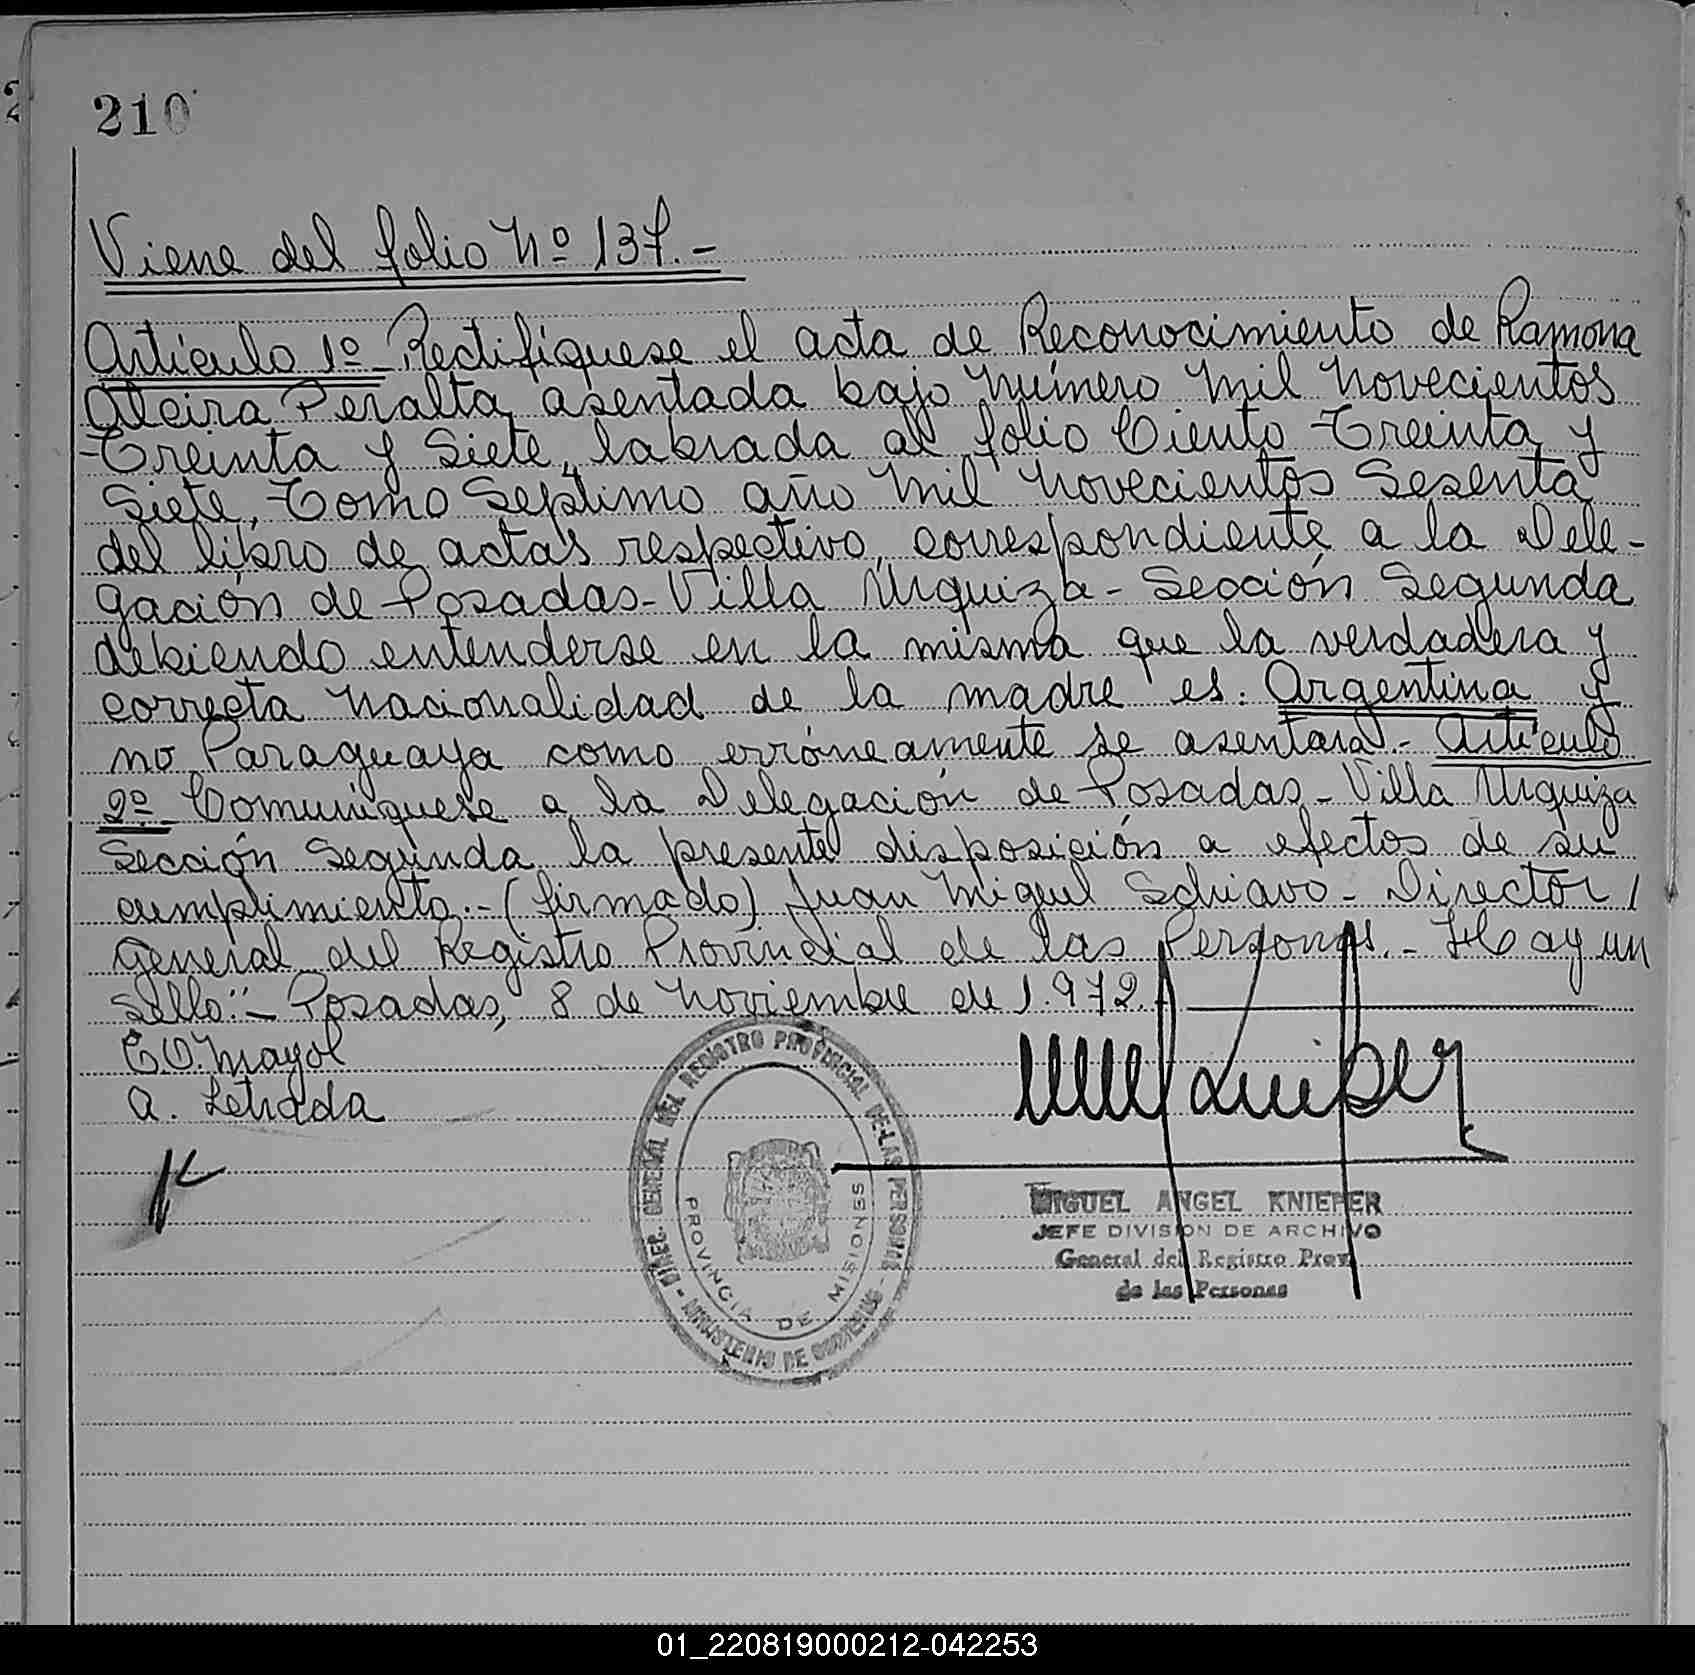 210
Viene del folio Nº 137.-
Artículo 1º- Rectifíquese el acta de Reconocimiento de Ramona
Alcira Peralta, asentada bajo número mil novecientos
Treinta y Siete, labrada al folio Ciento Treinta y
Siete, Tomo Septimo año mil novecientos Sesenta
del libro de actas respectivo, correspondiente a la Dele-
gación de Posadas- Villa Urquiza- Sección Segunda
debiendo entenderse en la misma que la verdadera y
correcta nacionalidad de la madre es: Argentina y
no Paraguaya como erróneamente se asentara.- Artículo
2º- Comuníquese a la Delegación de Posadas- Villa Urquiza
Sección Segunda la presente disposición a efectos de su
cumplimiento.- (firmado) Juan Miguel Schiavo- Director /
General del Registro Provincial de las Personas.- Hay un
sello:"- Posadas, 8 de noviembre de 1.972.-
C O. Mayol
A. Letrada
DIREC. GENERAL DEL REGISTRO PROVINCIAL DE LAS PERSONAS - MINISTERIO DE GOBIERNO -
PROVINCIA DE MISIONES
MIGUEL ANGEL KNIEPER
JEFE DIVISION DE ARCHIVO
General del Registro Prov.
de las Personas
01_220819000212-042253